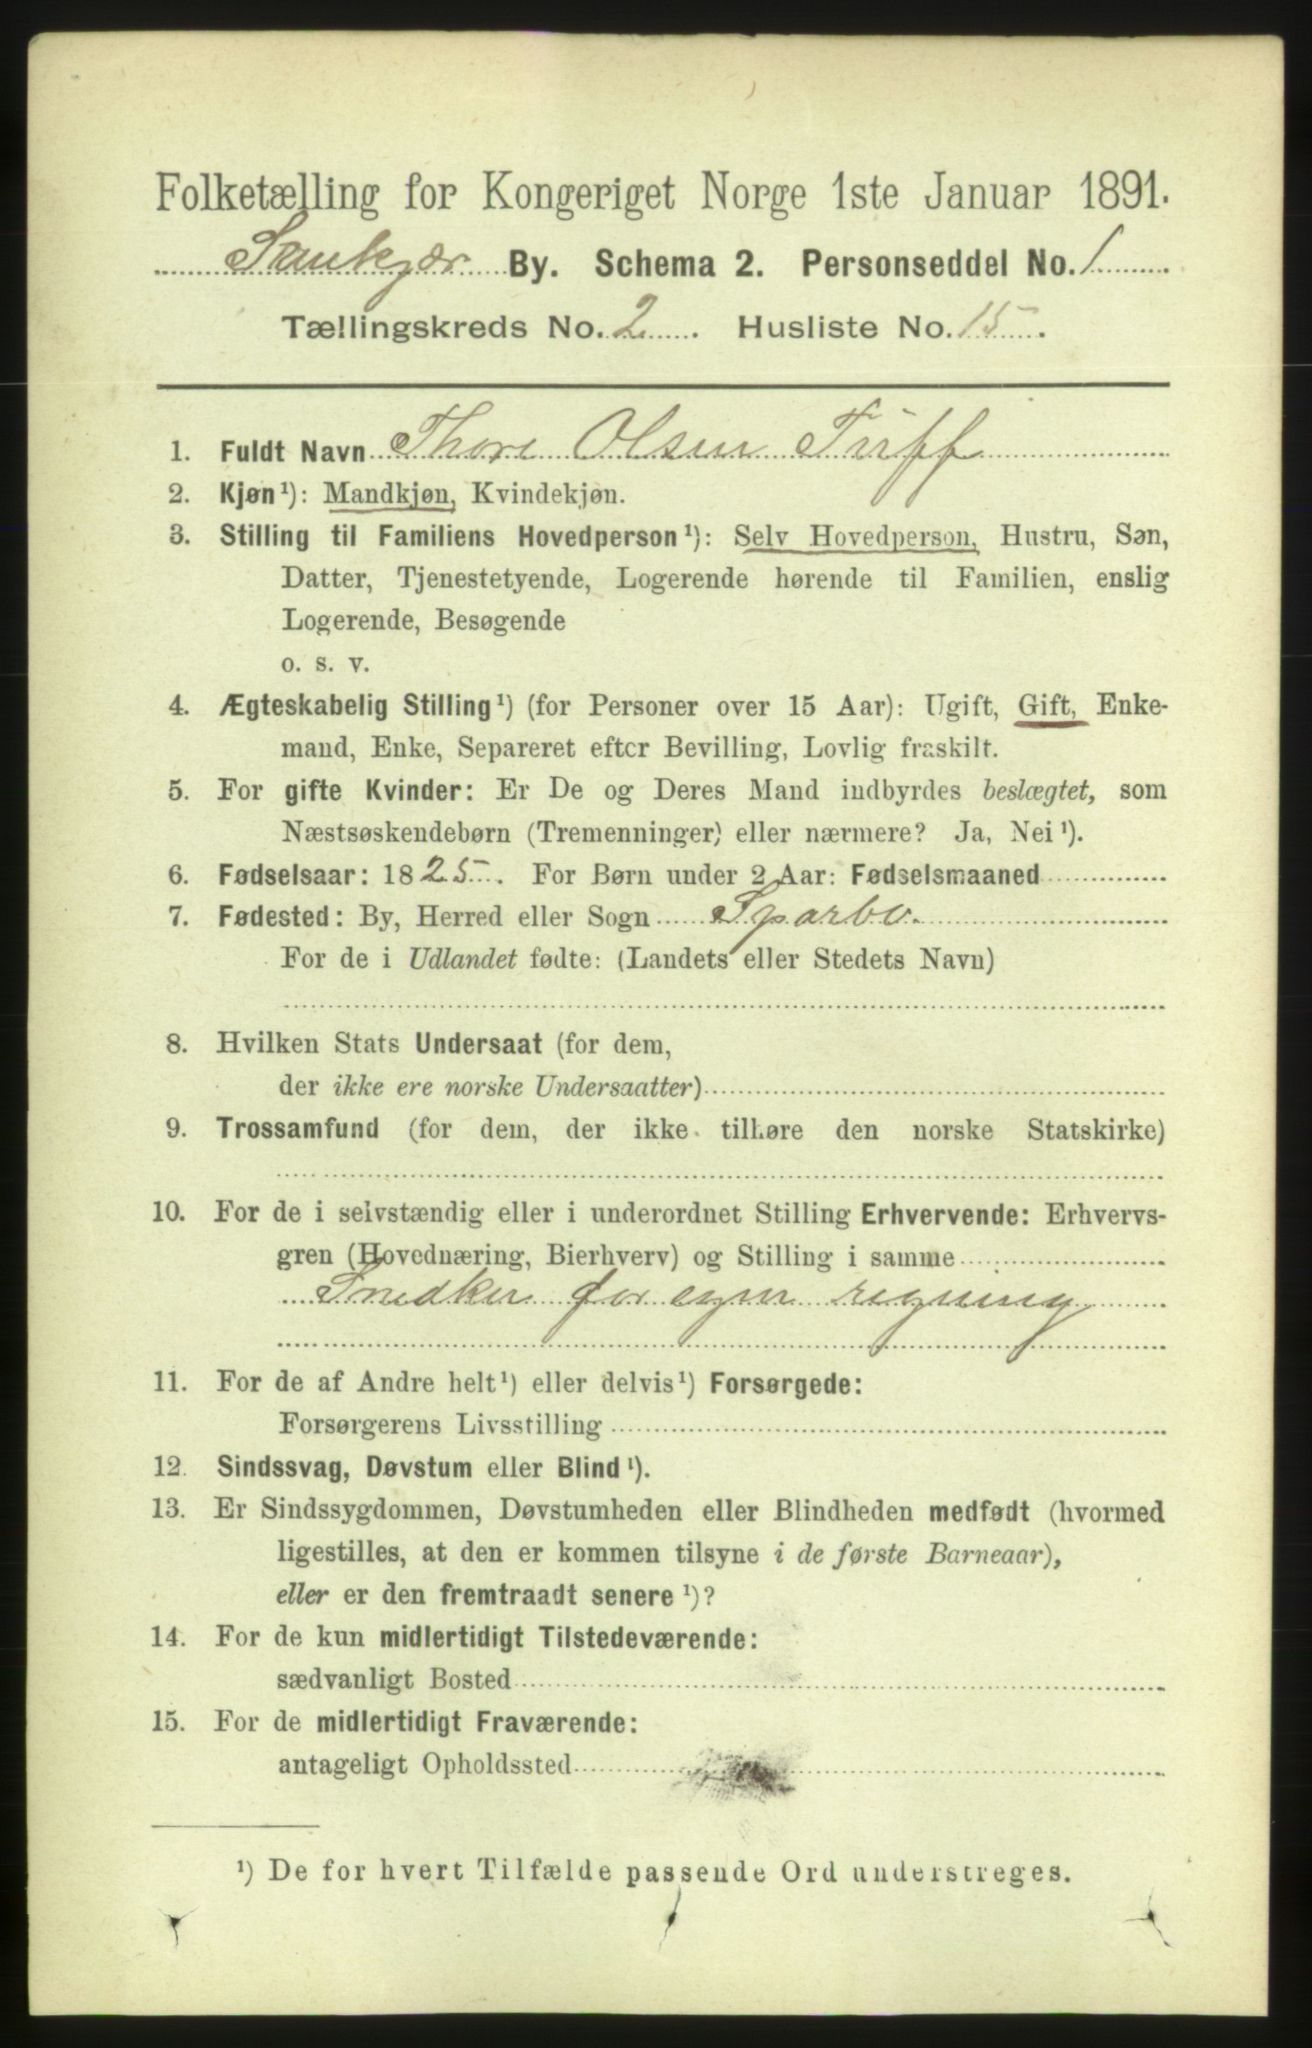 Folketælling for Kongeriget Norge 1ste Januar 1891.
Stenkjær By. Schema 2. Personseddel No. 1
Tællingskreds No. 2. Husliste No. 15.
1. Fuldt Navn Thore Olsen
2. Kjøn¹): Mandkjøn, Kvindekjøn.
3. Stilling til Familiens Hovedperson¹): Selv Hovedperson, Hustru, Søn,
Datter, Tjenestetyende, Logerende hørende til Familien, enslig
Logerende, Besøgende
o. s. v.
4. Ægteskabelig Stilling¹) (for Personer over 15 Aar): Ugift, Gift, Enke-
mand, Enke, Separeret efter Bevilling, Lovlig fraskilt.
5. For gifte Kvinder: Er De og Deres Mand indbyrdes beslægtet, som
Næstsøskendebørn (Tremenninger) eller nærmere? Ja, Nei¹).
6. Fødselsaar: 1825. For Børn under 2 Aar: Fødselsmaaned
7. Fødested: By, Herred eller Sogn Sparbo.
For de i Udlandet fødte: (Landets eller Stedets Navn)
8. Hvilken Stats Undersaat (for dem,
der ikke ere norske Undersaatter)
9. Trossamfund (for dem, der ikke tilhøre den norske Statskirke)
10. For de i selvstændig eller i underordnet Stilling Erhvervende: Erhvervs-
gren (Hovednæring, Bierhverv) og Stilling i samme
Snedker for egen regning
11. For de af Andre helt¹) eller delvis¹) Forsørgede:
Forsørgerens Livsstilling
12. Sindssvag, Døvstum eller Blind¹).
13. Er Sindssygdommen, Døvstumheden eller Blindheden medfødt (hvormed
ligestilles, at den er kommen tilsyne i de første Barneaar),
eller er den fremtraadt senere¹)?
14. For de kun midlertidigt Tilstedeværende:
sædvanligt Bosted
15. For de midlertidigt Fraværende:
antageligt Opholdssted
¹) De for hvert Tilfælde passende Ord understreges.